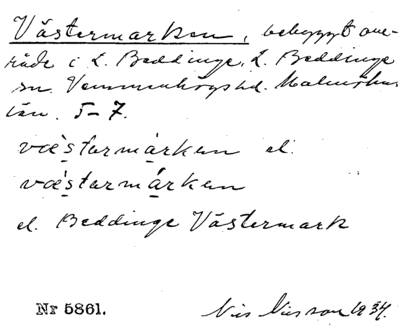 Västermarken, bebyggt om-
råde i L. Beddinge, L. Beddinge
sn. Vemmenhögs hd. Malmöhus
län. 5-7.
væ̀starmarkan el.
væ̀starmárkan
el. Beddinge Västermark
Nr 5861. Nils Nilsson 1934.